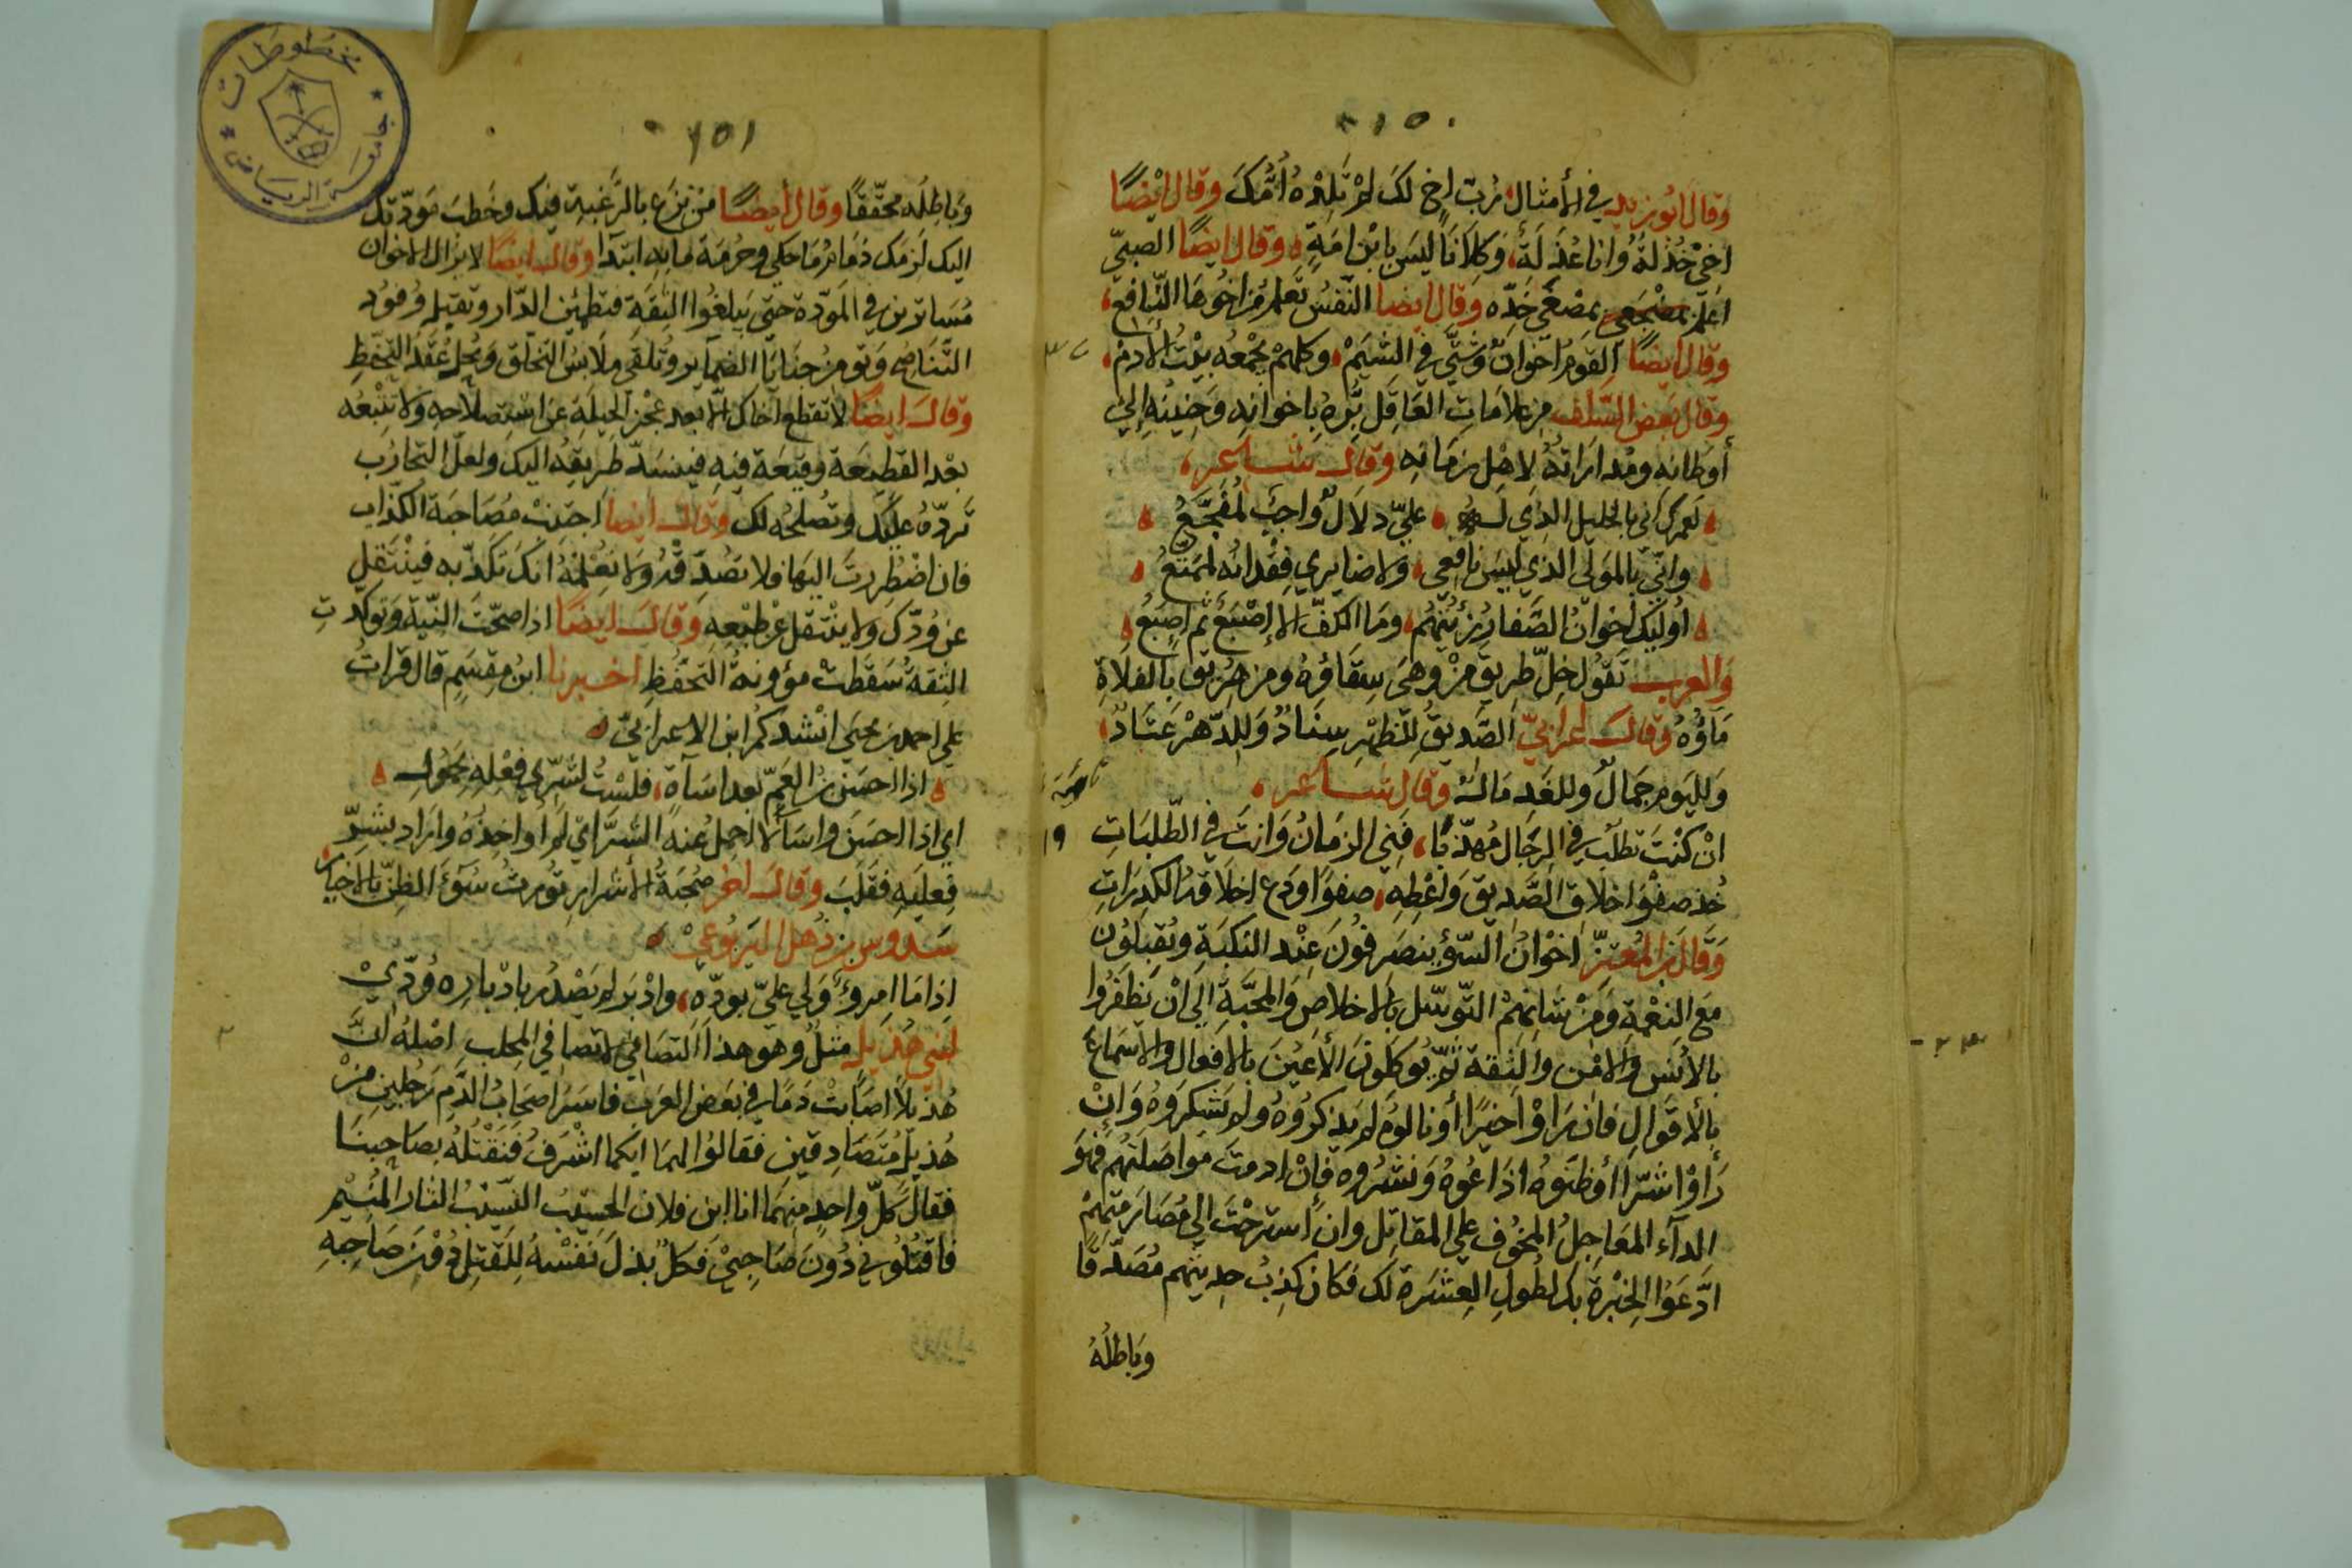 ١٥٠
وقال ابو زيد في الأمثال رُبّ اخٍ لكَ لم تَلِدْهُ اُمُّكَ وقال ايضًا
اخي خُذَلة وانا عُذَلَةٌ وكلانا ليسَ بابْن امَةٍ وقال ايضًا الصبيّ
اعلم بمصْغَى خَدِّه وقال ايضا النّفسُ تَعلم مَن اخُوها النّافع
وقال ايضًا القومُ اخوانٌ وشَتَّى في الشيَمْ وكلهمْ يجمعُه بيْتُ الأدمْ
وقال بعض السَّلف من علامَاتِ العَاقِل بَرّهُ باخوانِهِ وَحَنِينُهِ إلى
أوطانه ومُدارَاتهُ لاهْلِ زمَانِهِ وقال شاعر
لعمرك انى بالخليل الذي لهُ عليّ دلالٌ واجبٌ لمُفَجَّعُ
وانّي بالموَلَى الذي ليسَ نافعي ولا ضايري فِقْدانُه لمُمَتّعُ
أوليك اخوانُ الصَّفا رُزِئتُهُم ومَا الكفّ الا إصْبَعٌ ثم اصبَعُ
والعرب تقول خلّ طريق مَنْ وهَى سِقَاؤهُ ومن هُرِيق بالفلاةِ
مَاؤُهُ وقال اعرابيّ الصَّديقُ للظهْرِ سِنَادٌ وَللدّهْر عَتَادٌ
وَلليَوم جَمالٌ وللغَدِ مَالٌ وقال شاعر
انْ كنْتَ تطلُب في الرجَال مُهذّبًا فَنِي الزمَانُ وَانتَ في الطّلبَاتِ
خُذ صَفْوَ اخلاق الصَّديق وَاعْطِهِ صفوًا ودَع اخلاقهُ الكدِرَاتِ
وَقال بن المُعتزّ اخْوَانُ السّوْءِ ينصَرفُونَ عِنْد النكبَةِ ويُقبلُون
معَ النعْمة وَمِنْ شانهمْ التّوسّل بالاخلاصِ وَالمحبَّة الى انْ يَظفَرُوا
بالأنْس وَالامْن والثقة ثمّ يُوكلونَ الأعيُنَ بالافعال والأسَماعَ
بالأقوالِ فان رَاوْا خيرًا أو نالوُه لم يَذكرُوهُ ولم يَشكروهُ وَانْ
رَأوْا شرًّا أو ظَنّوهُ اذَاعُوهُ وَنشرُوه فَانْ ادمتَ مَواصَلتَهُم فهُوَ
الدآء المعَاجلُ المخُوف على المقاتِل وان استرحْتَ الى مُصَارَمتِهمْ
ادَّعَوُا الخِبْرةَ بك لطُولِ العِشرَة لك فكان كذِبُ حديثهم مُصَدّقًا
وَبَاطلُهُ
١٥١
وبَاطلُه محقّقًا وقال أيضًا مَن نزَع بالرَّغبةِ فيك وخَطبَ مَودّتك
اليك لزمك ذمَامُ مَا حكي وحُرمَة ما به ابتدا وقال ايضًا لا يزال الاخوان
مُسَافرين في المَودّة حتى يَبلغُوا الثِقَة فتطمئِن الدّار وتقبل وُفوُد
التّنَاصُح وَتومنُ خبَايَا الضمآير وتُلقَى ملابِسُ التخلّق ويُحلّ عُقَدُ التّحفّظِ
وقال ايضًا لا تقطع اخاك الّا بعد عَجْز الحيلَة عن استصلاحِهِ وَلا تتْبعُه
بعْد القطيعَة وقيعَة فيه فينسَدّ طَريقهُ اليك ولعلّ التجارُب
تَردّهُ عليْك وتُصلحُه لك وقال ايضا اجتَنبْ مُصَاحبَة الكذّاب
فان اضْطررتَ اليهَا فلا تصَدّقهُ وَلا تُعْلِمْهُ انكَ تكذّبه فينْتَقل
عن وُدّكَ ولا ينْتقل عن طبْعِه وَقال ايضًا اذا صحّت النّيّة وَتوكدتِ
الثقَةُ سَقَطتْ مؤونةُ التحَفّظِ اخبرنا ابنُ مِقسَمٍ قال قراتُ
على احمد بن يحيى انْشدكُم ابن الاعرابيّ
اذا احسَن بنُ العَمّ بعد اسآةٍ فلسْتُ لشَرّى فِعْلِهِ بحَمُولِ
اي اذا احسَنَ واسَآ لم احمل عنه الشَّرّاي لم اواخذهُ وارَاد بشرِّ
فِعليَهِ فقلبَ وَقال اخر صُحبَةُ الأشرار تورثُ سُوءَ الظنّ بالاخيار
سَدوس بن ذُهل اليَربُوعيْ
اذا مَا امرؤٌ وَلي عليّ بوُدّه وادْبرَ لم يَصْدُر بادْبارِه وُدّيْ
لبني هُذيل مثلٌ وهو هذا التصَافي لا تصَافي المحلب اصْلهُ انَّ
هُذيلًا اصَابتْ دَمًا في بَعض العرَب فاسَرَ اصحَابُ الدّم رَجُلين منْ
هُذيل مُتَصَادقين فقالوا لهمَا ايكما اشْرَفُ فنَقْتُلهُ بصَاحبنَا
فقال كلّ واحد منهمَا انا ابن فلان الحسيْبُ النّسيْبُ الثار المُنيْم
فاقتُلوُني دُونَ صَاحبيْ فكلٌّ بذلَ نَفسَهُ لِلقتل دُوْنَ صَاحِبهِ
مخطوطات
جامعة الرياض